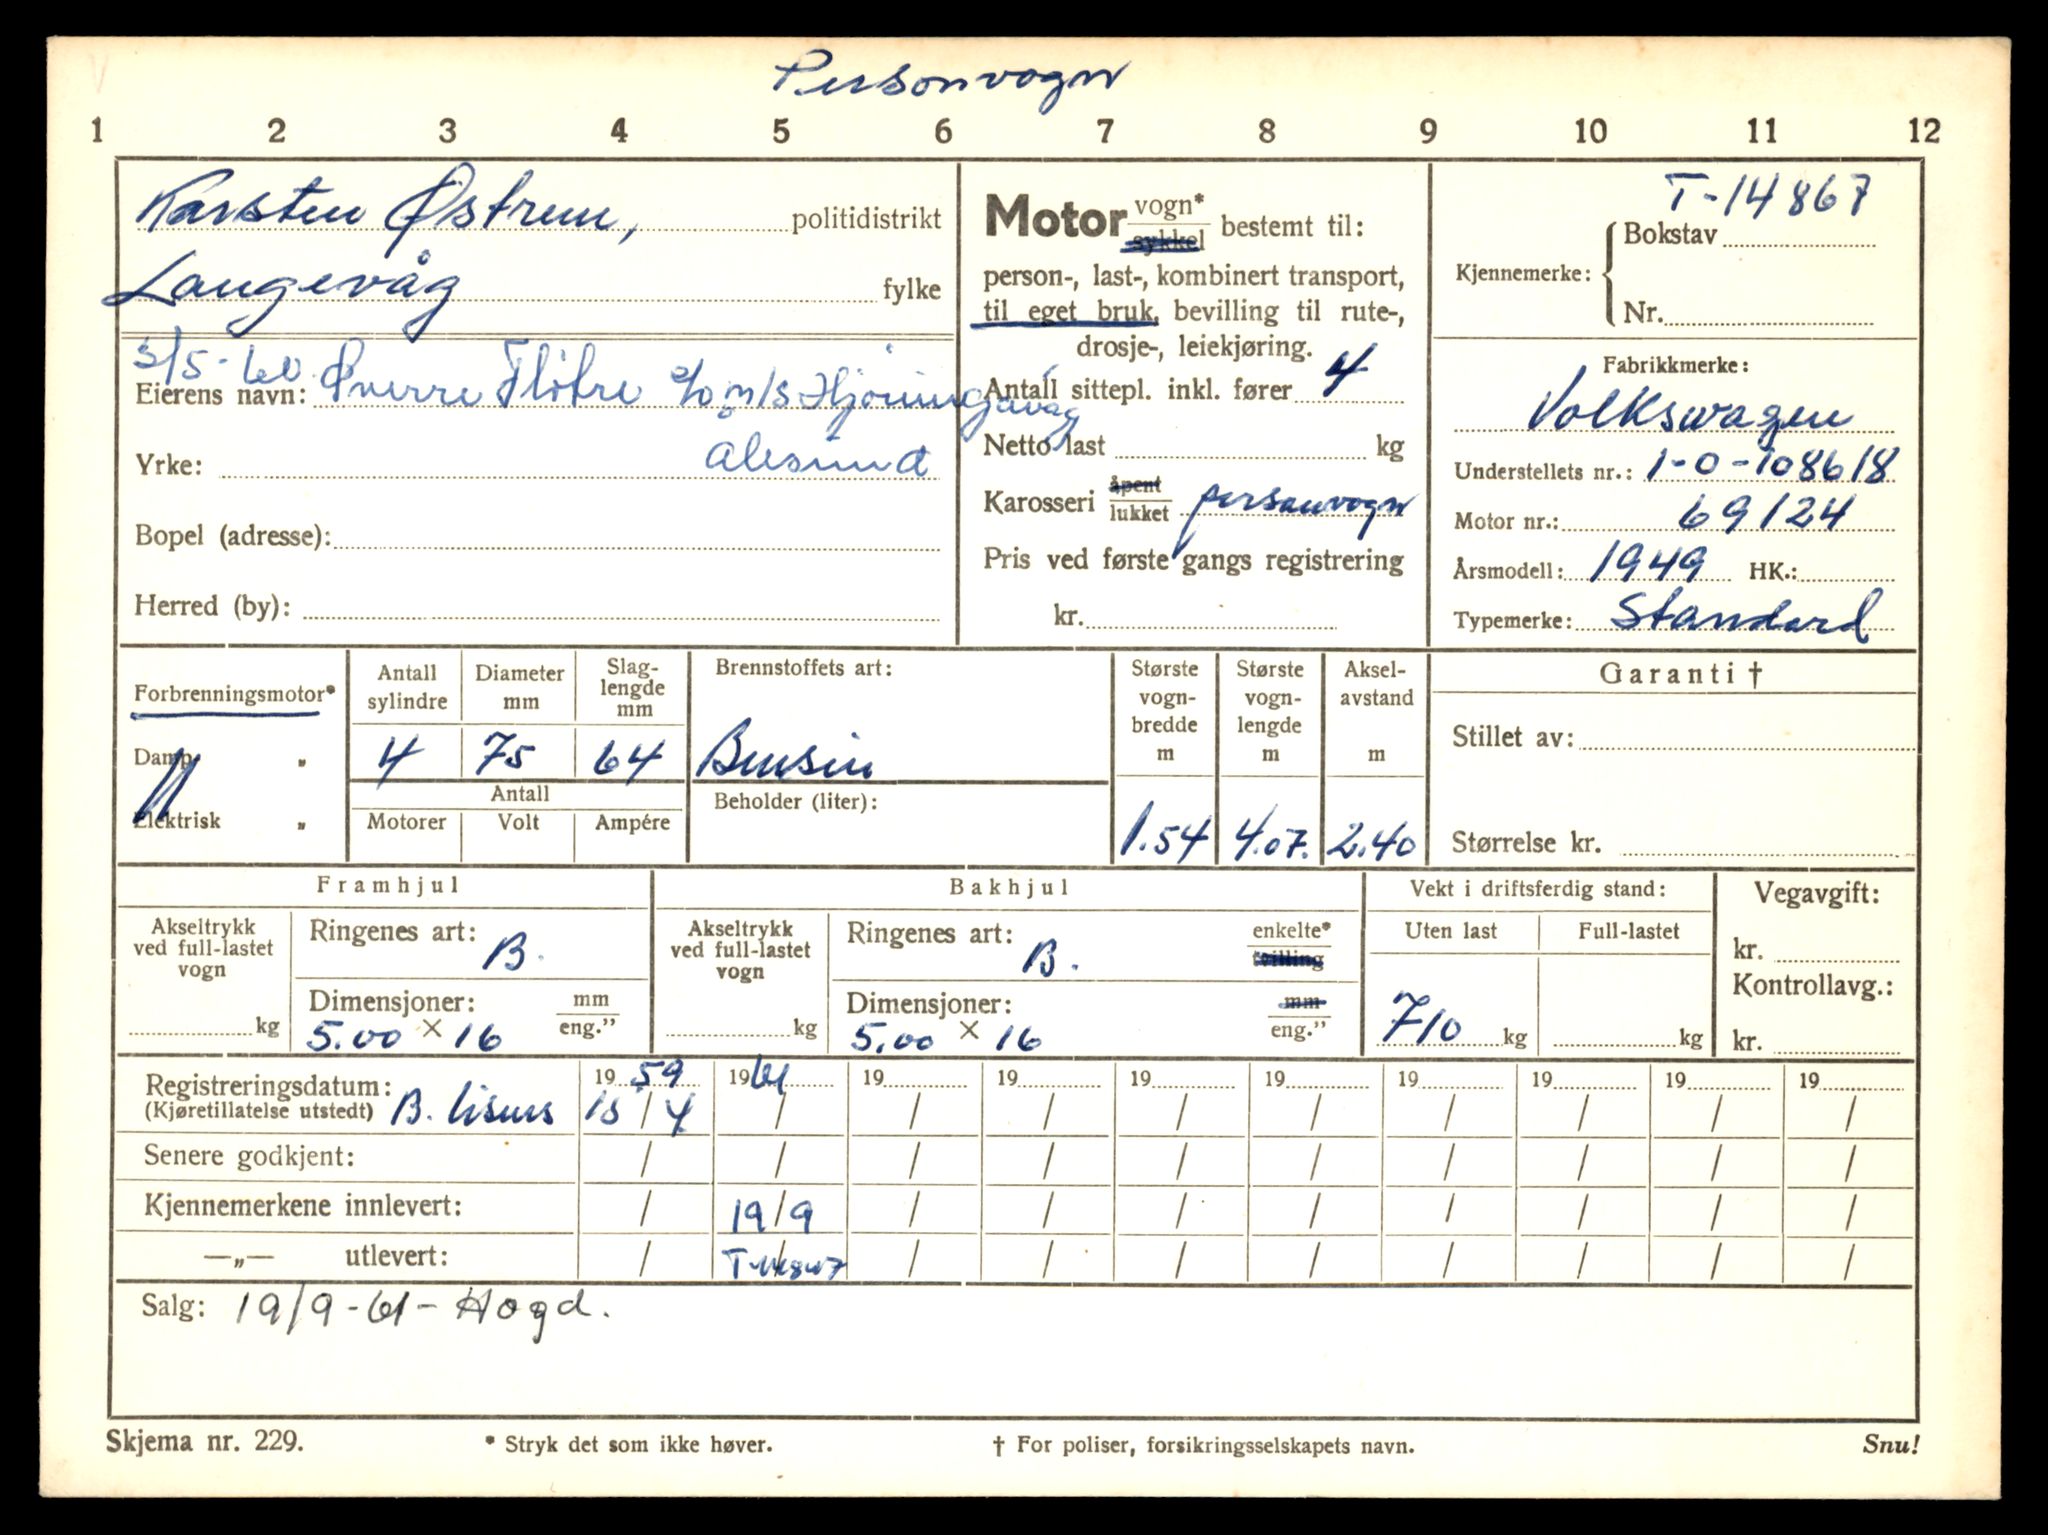 Personvogn
1 2 3 4 5 6 7 8 9 10 11 12
Karsten Østrem, politidistrikt
Langevåg fylke
3/5-60.
Eierens navn: Sverre Fløtre c/o m/s Hjørungavåg
Yrke: Ålesund
Bopel (adresse):
Herred (by):
Motor vogn* sykkel bestemt til:
person-, last-, kombinert transport,
til eget bruk, bevilling til rute-,
drosje-, leiekjøring.
Antall sittepl. inkl. fører 4
Netto last kg
Karosseri åpent lukket personvogn
Pris ved første gangs registrering
kr.
T-14867
Kjennemerke: { Bokstav
Nr.
Fabrikkmerke:
Volkswagen
Understellets nr.: 1-0-108618
Motor nr.: 69124
Årsmodell: 1949 HK.:
Typemerke: Standard
Forbrenningsmotor*
Damp „
Elektrisk „
Antall sylindre Diameter mm Slag-lengde mm
4 75 64
Antall
Motorer Volt Ampére
Brennstoffets art:
Bensin
Beholder (liter):
Største vogn-bredde m Største vogn-lengde m Aksel-avstand m
1.54 4.07. 2.40
Garanti †
Stillet av:
Størrelse kr.
Framhjul
Akseltrykk ved full-lastet vogn
kg
Ringenes art: B.
Dimensjoner: mm eng."
5.00 × 16
Bakhjul
Akseltrykk ved full-lastet vogn
kg
Ringenes art: B. enkelte* tvilling
Dimensjoner: mm eng."
5.00 × 16
Vekt i driftsferdig stand:
Uten last Full-lastet
710 kg kg
Vegavgift:
kr.
Kontrollavg.:
kr.
Registreringsdatum: 19 59 19 61 19 19 19 19 19 19 19 19
(Kjøretillatelse utstedt) B. lisens 15 / 4 / / / / / / / / /
Senere godkjent: / / / / / / / / / /
Kjennemerkene innlevert: / 19/9 / / / / / / / /
—„— utlevert: / / / / / / / / /
Salg: 19/9-61- Hogd.
Skjema nr. 229. * Stryk det som ikke høver. † For poliser, forsikringsselskapets navn. Snu!